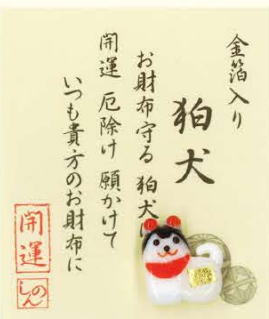 金箔入り
狛犬
お財布守る 狛犬に
開運 厄除け 願かけて
いつも貴方のお財布に
開運